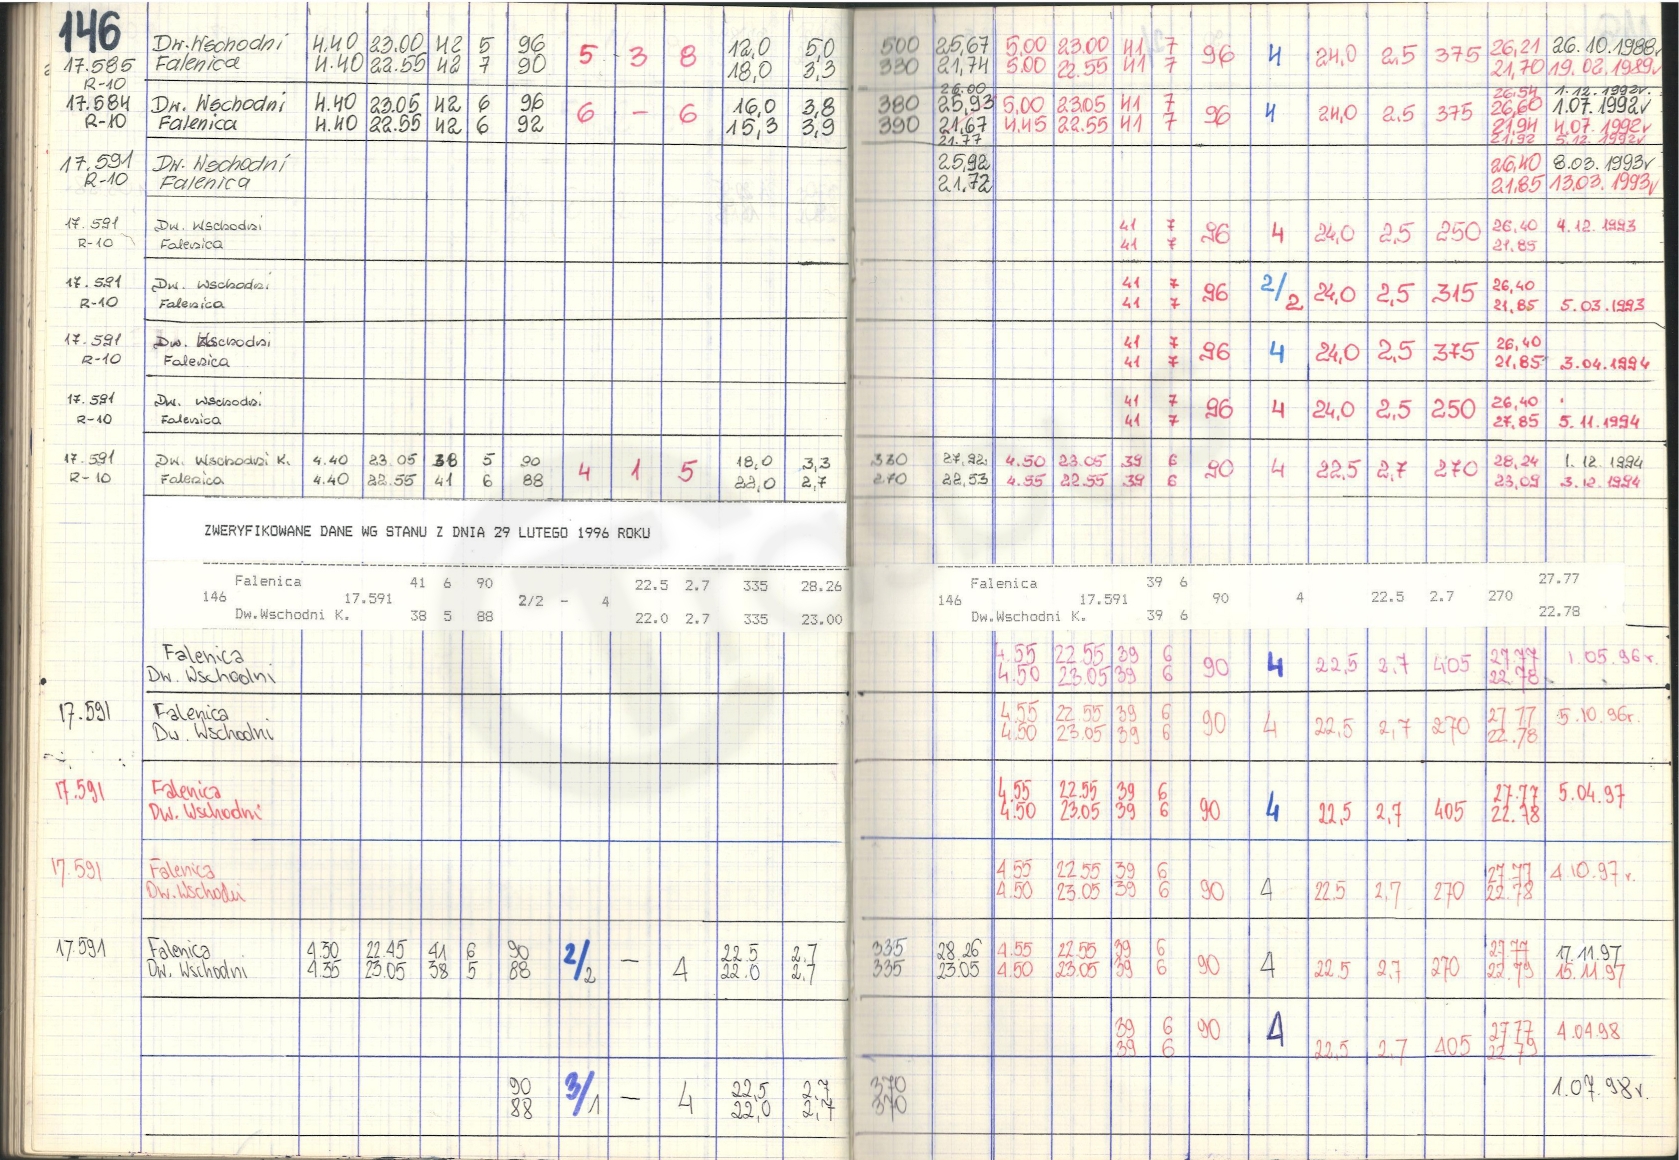 146
Dw. Wschodni 4.40 23.00 42 5 96 5 - 3 - 8 12,0 5,0 500 25,67 5.00 23.00 41 7 96 4 24,0 2.5 375 26,21 26.10.1988r
17.585 Falenica 4.40 22.55 42 7 90 18,0 3,3 330 21,74 5.00 22.55 41 7 21,70 19.02.1989r
R-10 26.00 26,54 1.12.1992r
17.584 Dw. Wschodni 4.40 23.05 42 6 96 6 - 6 16,0 3,8 380 25,93 5,00 23.05 41 7 96 4 24,0 2.5 375 26,60 1.07.1992r
R-10 Falenica 4.40 22.55 42 6 92 15,3 3,9 390 21,67 4.45 22.55 41 7 21,94 4.07.1992r
21.77 21,92 5.12.1992r
17.591 Dw. Wschodni 25,92 26,40 8.03.1993r
R-10 Falenica 21.72 21,85 13.03.1993r
17.591 Dw. Wschodni 41 7 96 4 24,0 2,5 250 26,40 4.12.1993
R-10 Falenica 41 7 21.85
17.591 Dw. Wschodni 41 7 96 2/2 24,0 2,5 315 26,40
R-10 Falenica 41 7 21,85 5.03.1993
17.591 Dw. Wschodni 41 7 96 4 24,0 2,5 375 26,40
R-10 Falenica 41 7 21,85 3.04.1994
17.591 Dw. Wschodni 41 7 96 4 24,0 2,5 250 26,40
R-10 Falenica 41 7 27,85 5.11.1994
17.591 Dw. Wschodni K. 4.40 23.05 38 5 90 4 1 5 18,0 3,3 330 27,92 4.50 23.05 39 6 90 4 22,5 2,7 270 28,24 1.12.1994
R-10 Falenica 4.40 22.55 41 6 88 22,0 2,7 270 22,53 4.55 22.55 39 6 23,09 3.12.1994
ZWERYFIKOWANE DANE WG STANU Z DNIA 29 LUTEGO 1996 ROKU
Falenica 41 6 90 22.5 2.7 335 28.26 Falenica 39 6 27.77
146 17.591 2/2 - 4 146 17.591 90 4 22.5 2.7 270
Dw.Wschodni K. 38 5 88 22.0 2.7 335 23.00 Dw.Wschodni K. 39 6 22.78
Falenica 4.55 22.55 39 6 90 4 22,5 2.7 405 27.77 1.05.96r.
Dw. Wschodni 4.50 23.05 39 6 22.78
17.591 Falenica 4.55 22.55 39 6 90 4 22,5 2,7 270 27.77 5.10.96r.
Dw. Wschodni 4.50 23.05 39 6 22.78
17.591 Falenica 4.55 22.55 39 6 90 4 22,5 2,7 405 27.77 5.04.97
Dw. Wschodni 4.50 23.05 39 6 22.78
17.591 Falenica 4.55 22.55 39 6 90 4 22.5 2,7 270 27.77 4.10.97r.
Dw. Wschodni 4.50 23.05 39 6 22.78
17.591 Falenica 4.30 22.45 41 6 90 2/2 - 4 22.5 2.7 335 28.26 4.55 22.55 39 6 90 4 22.5 2,7 270 27.77 17.11.97
Dw. Wschodni 4.35 23.05 38 5 88 22.0 2,7 335 23.05 4.50 23.05 39 6 22.79 15.11.97
39 6 90 4 22,5 2.7 405 27.77 4.04.98
39 6 22.79
90 3/1 - 4 22,5 2.7 370 1.07.98r.
88 22,0 2,7 370